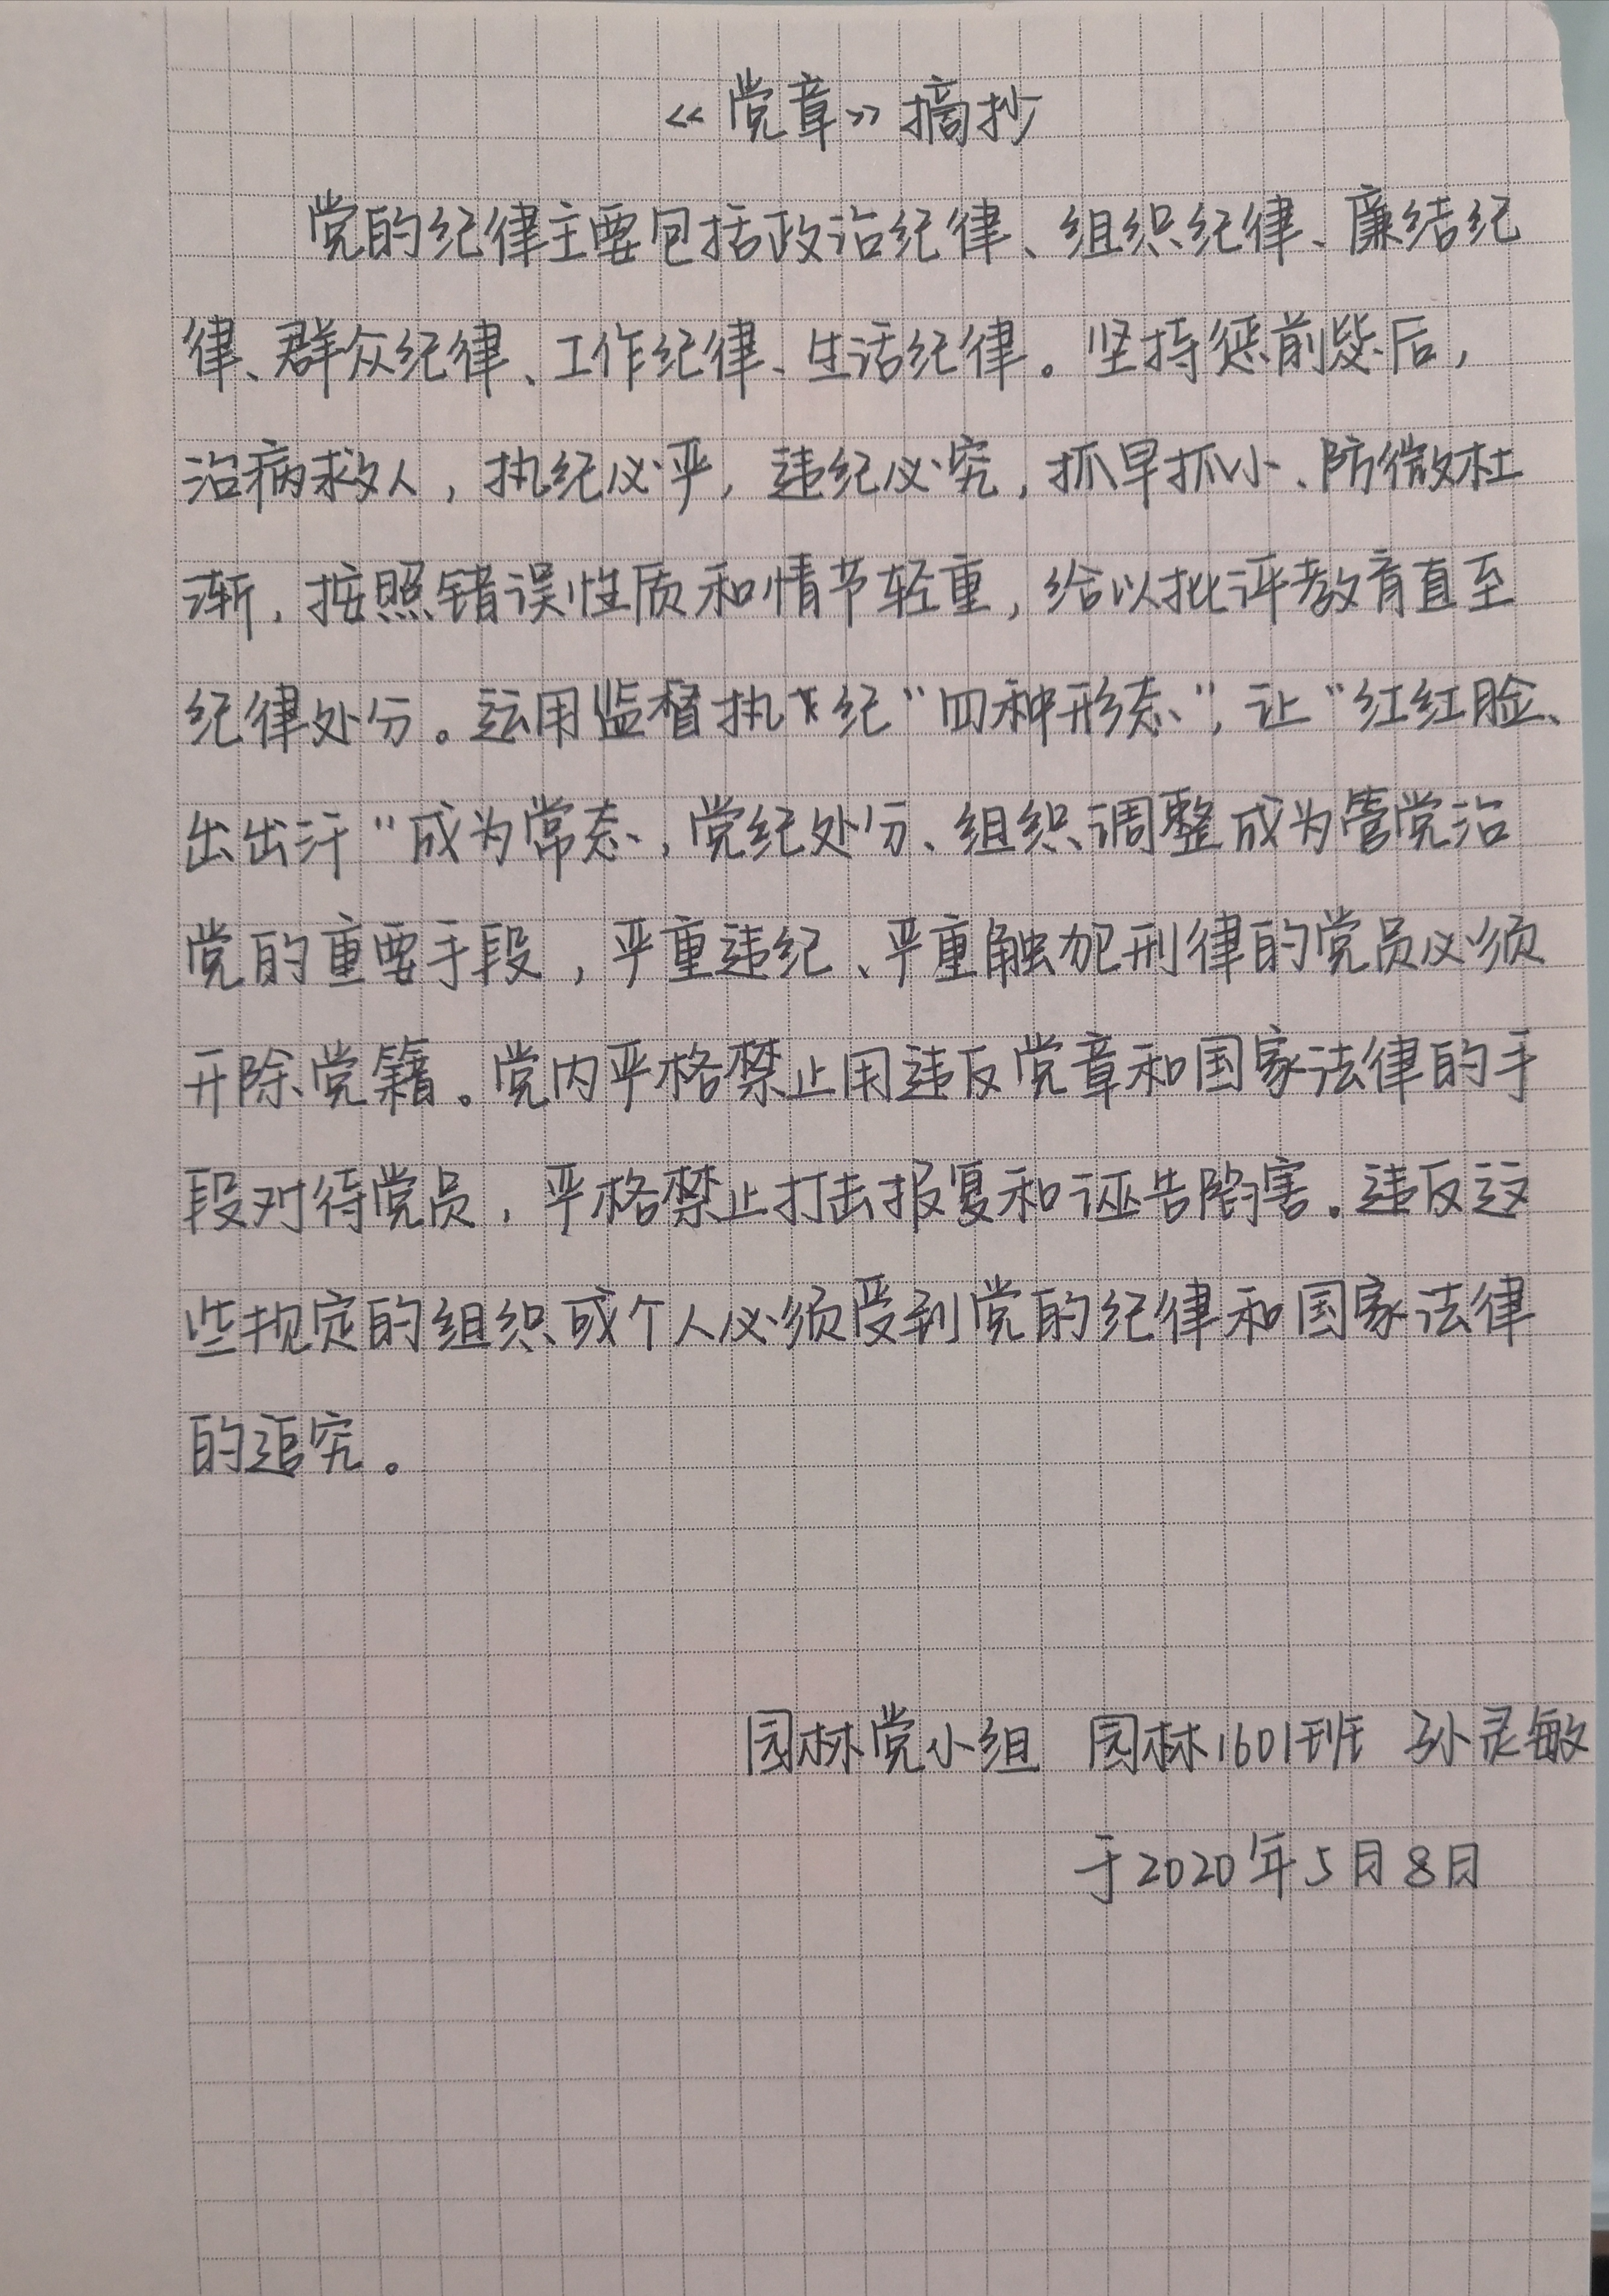 《党章》摘抄
党的纪律主要包括政治纪律、组织纪律、廉结纪
律、群众纪律、工作纪律、生活纪律。坚持惩前毖后，
治病救人，执纪必严，违纪必究，抓早抓小、防微杜
渐，按照错误性质和情节轻重，给以批评教育直至
纪律处分。运用监督执纪“四种形态”，让“红红脸、
出出汗”成为常态，党纪处分、组织调整成为管党治
党的重要手段，严重违纪、严重触犯刑律的党员必须
开除党籍。党内严格禁止用违反党章和国家法律的手
段对待党员，严格禁止打击报复和诬告陷害。违反这
些规定的组织或个人必须受到党的纪律和国家法律
的追究。
园林党小组 园林1601班 孙灵敏
于2020年5月8日